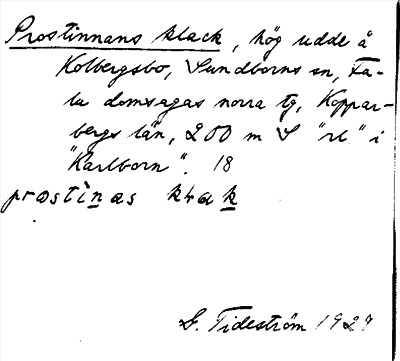 Prostinnans klack, hög udde å
Kolbergsbo, Sundborns sn, Fa-
lu domsagas norra tg, Koppar-
bergs län, 200 m S "rl" i
"Karlborn". 18
prostìnas klak
G. Tideström 1927